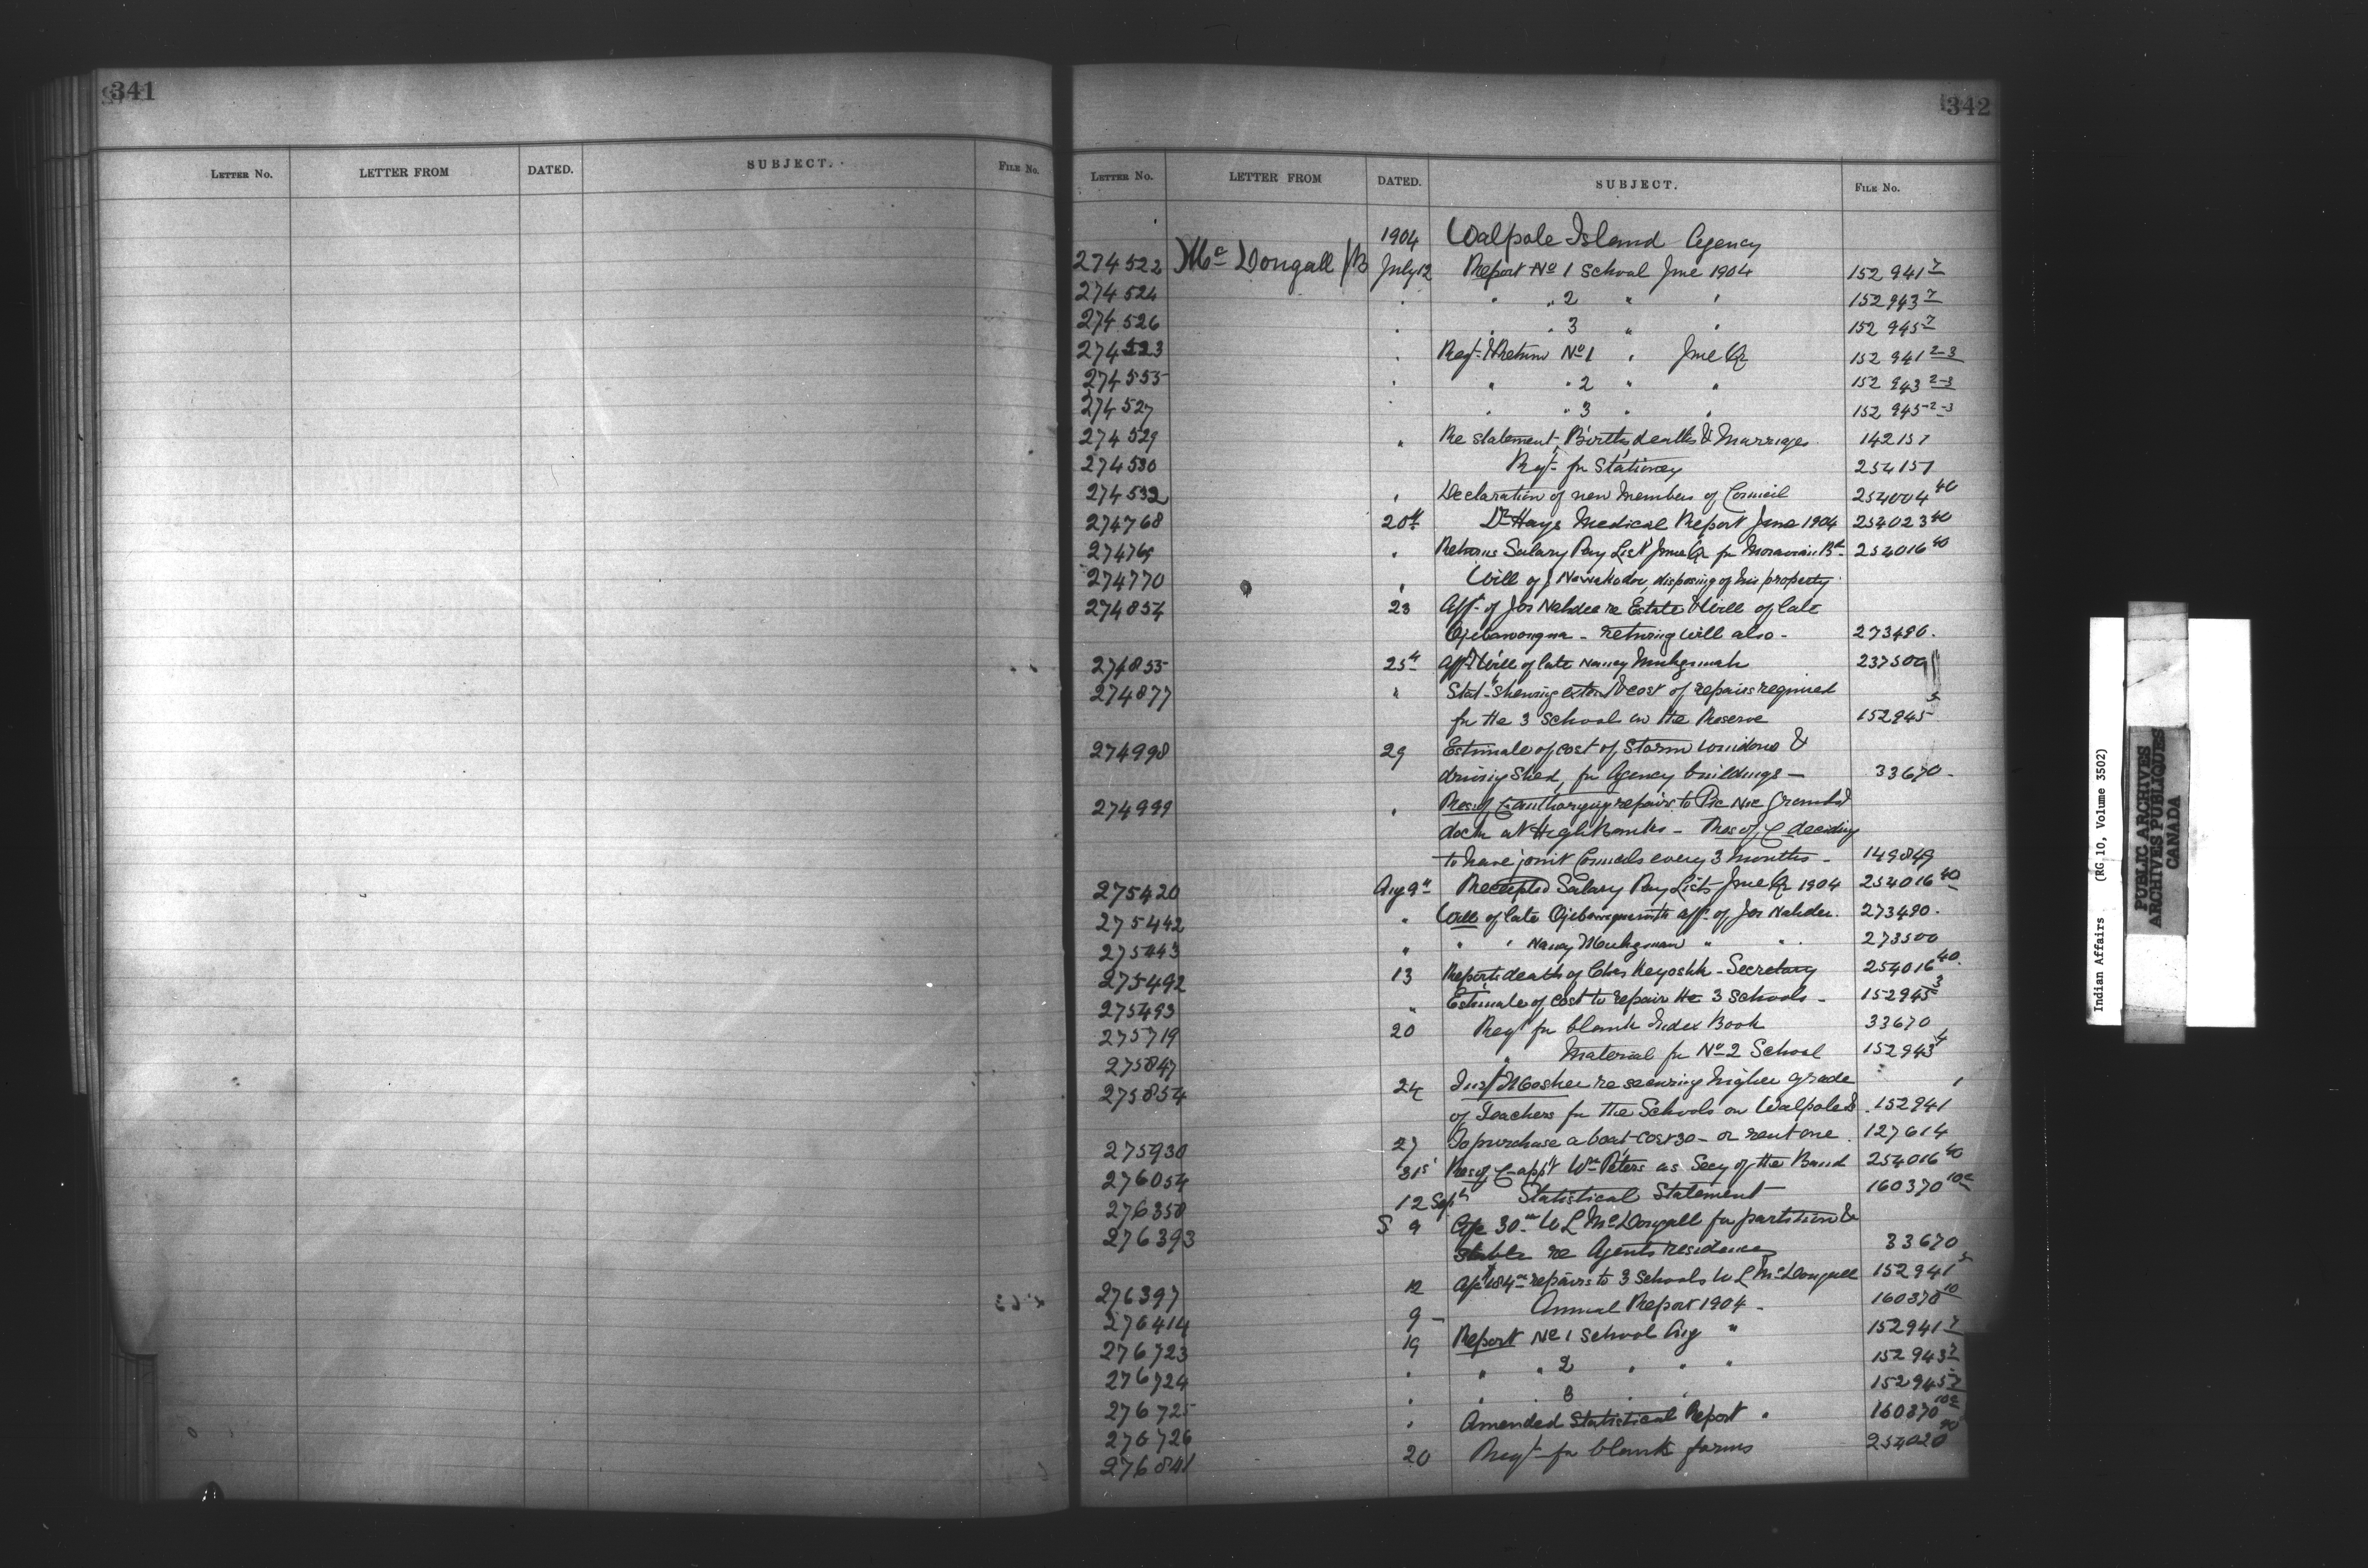 341
LETTER No. LETTER FROM DATED. SUBJECT. FILE No.
342
LETTER No. LETTER FROM DATED. SUBJECT. FILE No.
1904 Walpole Island Agency
274522 McDougall July 12 Report No 1 School June 1904 152941 7
274524 " " " 2 " " 152943 7
274526 " " " 3 " " 152945 7
274523 " Reqt & Return No 1 " June Qr 152941 2-3
274555 " " " 2 " " 152943 2-3
274527 " " " 3 " " 152945 2-3
274529 " Re statement Births deaths & Marriages 142151
274530 Reqt for Stationery 254151
274532 " Declaration of new Members of Council 254004 40
274768 20th Dr Hays Medical Report June 1904 254023 40
274769 " Returns Salary Pay List June Qr for Moravian Bd 254016 40
274770 " Will of J disposing of his property
274854 23 Afft of Jos Nahdee re Estate & Will of late
- returning will also - 273490.
274855 25th Afft & Will of late Nancy 237500
274877 " Stat- shewing extent & cost of repairs required
for the 3 School on the Reserve 152945 5
274998 29 Estimate of cost of Storm windows &
driving shed, for Agency buildings - 33670 -
274999 " Res of C authorizing repairs to Pic Nic Grounds &
dock at Highbanks - Res of C deciding
to have joint Councils every 3 months - 149849
275420 Aug 9th Receipted Salary Pay Lists June Qr 1904 254016 40
275442 " Will of late with afft of Jos Nahdee. 273490.
275443 " " " Nancy " " 273500
275492 13 Reports death of Chas Keyoshk - Secretary 254016 40.
275493 " Estimate of cost to repair the 3 Schools - 152945 3
275719 20 Reqt for blank Index Book 33670
275847 " Material for No 2 School 152943 4
275854 24 Inspt Mosher re securing higher grade
of Teachers for the Schools on Walpole Is. 152941 1
275930 27 To purchase a boat cost 30 - or rent one. 127614
276054 31st Res of C appt Wm Peters as Secy of the Band 254016 40
276358 12 Sept Statistical Statement 160370 10a
276393 S 9 30.00 W L McDougall for partition &
stable re Agents residence 33670
276397 12 184.00 repairs to 3 Schools W L McDougall 152941 5
276414 9 - Annual Report 1904 - 160370 10
276723 19 Report No 1 School Aug " 152941 7
276724 " " " 2 " " " 152943 7
276725 " " 3 " " 152945 7
276726 " Amended Statistical Report " 160370 10a
276841 20 Reqt for blank forms 254020 40
Indian Affairs (RG.10, Volume 3502)
PUBLIC ARCHIVES
ARCHIVES PUBLIQUES
CANADA